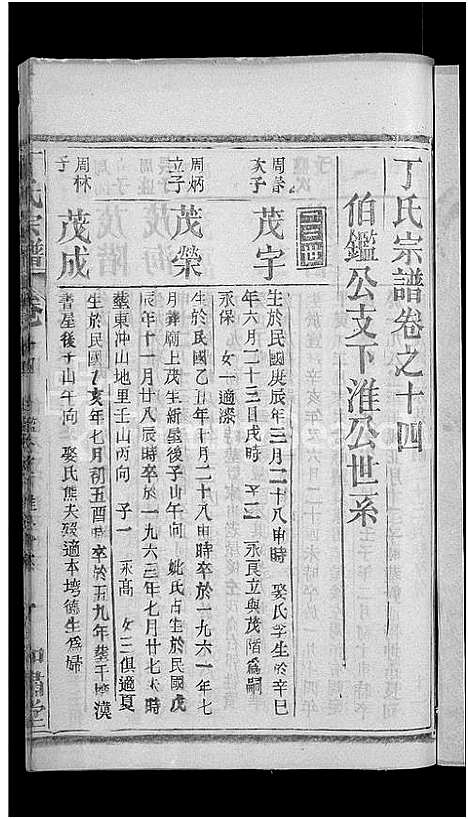 丁氏宗譜卷之十四
伯鑑公支下淮公世系
三三四
周
次子
茂宇
生於民國庚辰年三月二十八申時 娶氏李生於辛巳
年六月二十三日戌時 子二 永良立與茂階爲嗣
永保 女一適漆
周炳
立子
茂榮
生於民國乙丑年十月二十八申時卒於一九六一年七
月葬廟上茂生新屋後子山午向 妣氏占生於民國戊
辰年十一月廿八辰時卒於一九六三年七月廿七未時
葬東冲山地里壬山丙向 子一 永高 女三俱適夏
周林
子
茂成
生於民國乙亥年七月初五酉時卒於五九年葬于 漢
書屋後子山午向 娶氏熊夫歿適本塆德生爲婦
丁氏宗譜
卷
十四
堂